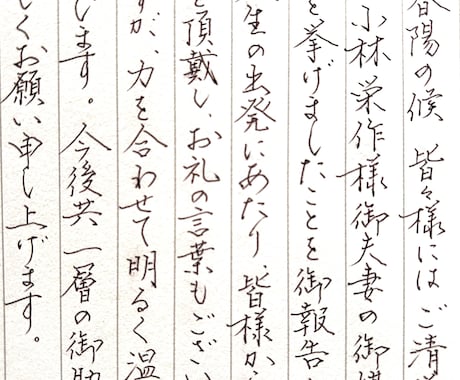 春陽の候 皆々様にはご清
小林栄作様御夫妻の御媒
を挙げましたことを御報告
生の出発にあたり、皆様か
を頂戴し、お礼の言葉もござい
すが、力を合わせて明るく温
します。今後共一層の御助
しくお願い申し上げます。